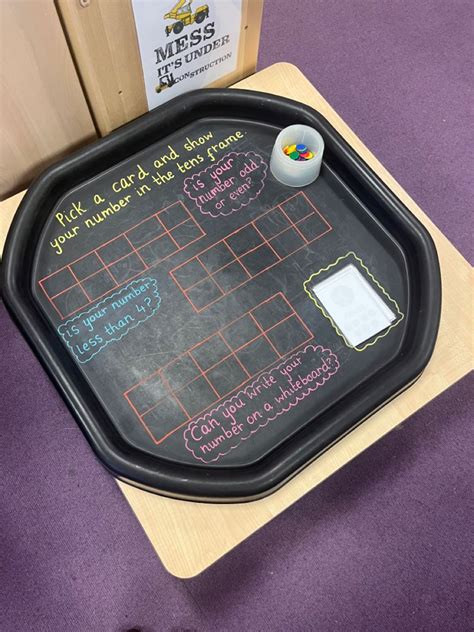 MESS
IT'S UNDER
CONSTRUCTION
Pick a card and show
your number in the tens frame.
Is your
number odd
or even?
Is your number
less than 4?
Can you write your
number on a whiteboard?